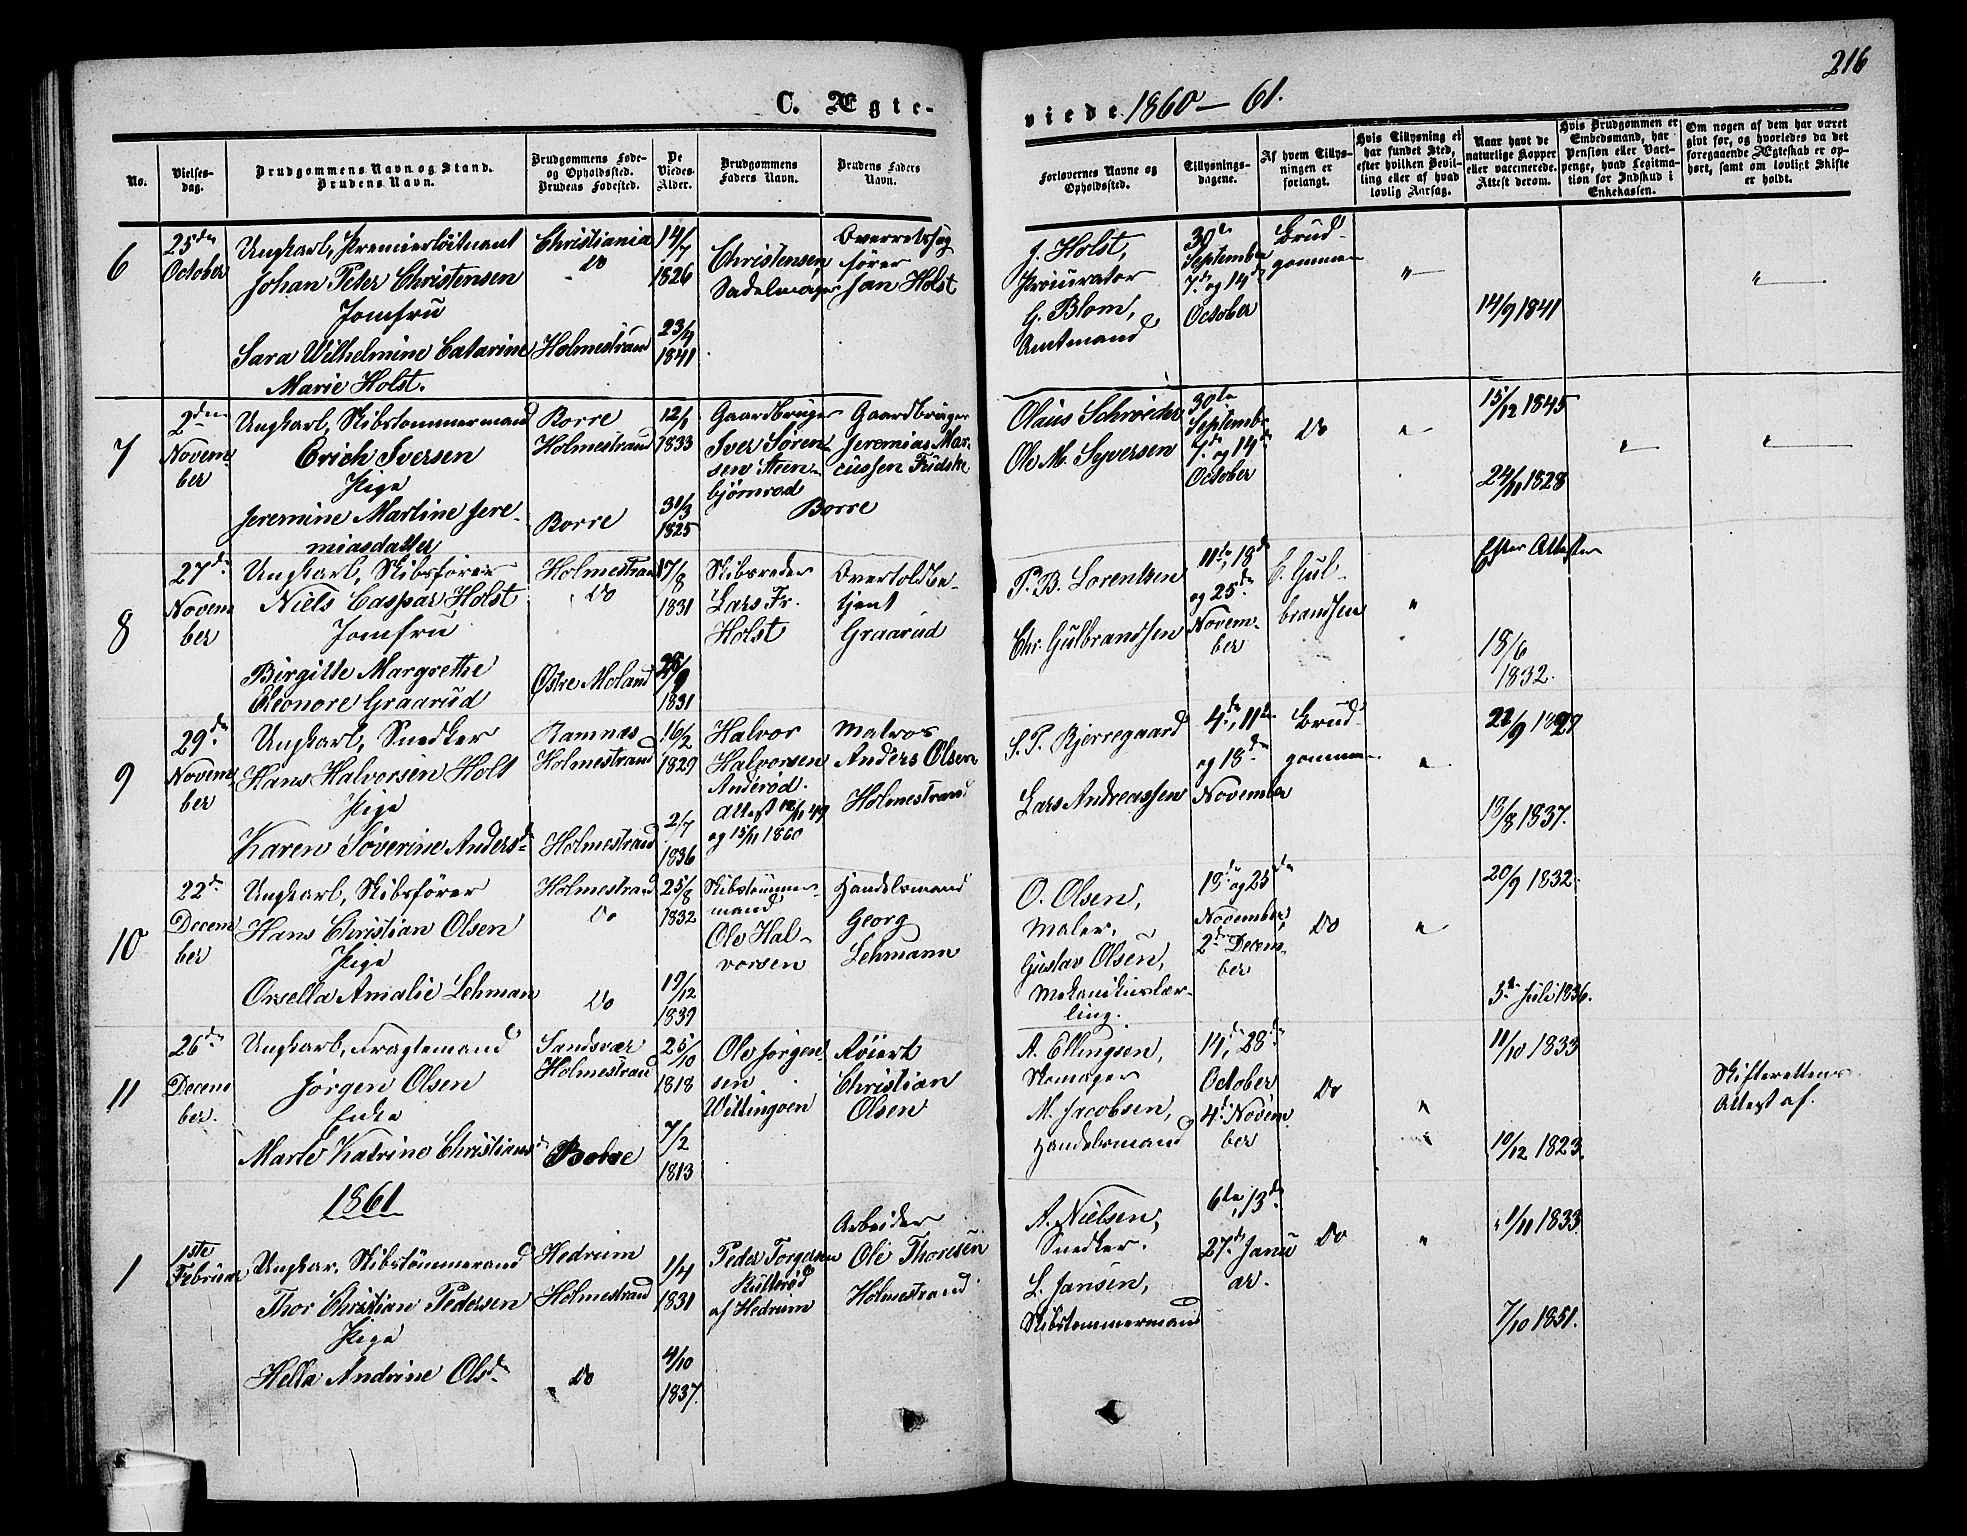 216
C. Ægte-
viede 1860 – 61.
No.
Vielses-
dag.
Brudgommens Navn og Stand.
Brudens Navn.
Brudgommens Føde-
og Opholdssted.
Brudens Fødested.
De
Viedes
Alder.
Brudgommens
Faders Navn.
Brudens Faders
Navn.
Forlovernes Navne og
Opholdssted.
Tillysnings-
dagene.
Af hvem Tillys-
ningen er
forlangt.
Hvis Tillysning ei
har fundet Sted,
efter hvilken Bevil-
ling eller af hvad
lovlig Aarsag.
Naar havt de
naturlige Kopper
eller vaccinerede.
Attest derom.
Hvis Brudgommen er
Embedsmand, har
Pension eller Vart-
penge, hvad Legitima-
tion for Indskud i
Enkekassen.
Om nogen af dem har været
gift før, og hvorledes da det
foregaaende Ægteskab er op-
hørt, samt om lovligt Skifte
er holdt.
6
25de
October
Ungkarl, Premierløitnant
Johan Peter Christensen
Jomfru
Sara Wilhelmine Catarine
Marie Holst.
Christiania
Do
Holmestrand
14/7
1826
23/9
1841
Christensen,
Sadelmager
Overretssag
fører
Jan Holst
J. Holst,
Procurator
G. Blom,
Amtmand
30te
September
7de og 14de
October
Brud-
gommen
"
14/9 1841
"
7
2den
Novem-
ber
Ungkarl, Skibstømmermand
Erich Iversen
Pige
Jeremine Martine Jere-
miasdatter
Borre
Holmestrand
Borre
12/1
1833
31/3
1825
Gaardbruger
Iver Søren-
sen Steen-
bjørnrød
Gaardbruger
Jeremias Mar-
cussen Fudske
Borre
Olaus Schrøder
Ole M. Syversen
30te
September
7de og 14de
October
Do
"
15/12 1845
24/11 1828
"
"
8
27de
Novem
ber
Ungkarl, Skibsfører
Niels Caspar Holst
Jomfru
Birgitte Margrethe
Eleonore Graarud
Holmestrand
Do
Østre Moland
17/8
1831
28/9
1831
Skibsreder
Lars Fr.
Holst
Overtoldbe-
tjent
Graarud
P. B. Lorentzen
Chr. Gulbrandsen
11te, 18de
og 25de
Novem-
ber
C. Gul-
brandsen
"
Efter Attester
18/6
1832.
9
29de
Novem
ber
Ungkarl, Snedker
Hans Halvorsen Holt
Pige
Karen Søverine Andersd.
Ramnæs
Holmestrand
Holmestrand
16/2
1829
2/7
1836
Halvor
Halvorsen
Anderød.
Attest 12/11 49
og 15/11 1860
Matros
Anders Olsen
Holmestrand
S. P. Bjerregaard
Lars Andreassen
4de, 11te
og 18de
November
Brud-
gommen
"
13/8 1837.
10
22de
Decem
ber
Ungkarl, Skibsfører
Hans Christian Olsen
Pige
Orsella Amalie Lehman
Holmestrand
Do
Do
25/8
1832
19/12
1839
Skibstømmer-
mand
Ole Hal-
vorsen
Handelsmand
Georg
Lehmann
O. Olsen,
Maler,
Gustav Olsen,
Mekanikuslær-
ling.
18de og 25de
November,
2den Decem-
ber
Do
"
20/9 1832.
5te Juli 1836.
11
26de
Decem
ber.
Ungkarl, Fragtemand
Jørgen Olsen
Enke
Marte Katrine Christiansd
Sandsvær
Holmestrand
Botne
25/10
1818
7/2
1813
Ole Jørgen-
sen
Wittingoen
Røiert
Christian
Olsen
A. Ellingsen,
Skomager
M. Jacobsen,
Handelsmand
14de, 28de
October
4de Novem
ber
Do
"
11/10 1833
10/12 1823.
Skifterettens
Attest af.
1861
1
1ste
Februar
Ungkar. Skibstømmermand
Thor Christian Pedersen
Pige
Hella Andrine Olsdr
Hedrum
Holmestrand
Do
1/4
1831
4/10
1837.
Peder Torgersen
Rulterød
af Hedrum
Arbeider
Ole Thoresen
Holmestrand
A. Nielsen,
Snedker.
L. Jansen,
Skibstømmermand
6te, 13de
27de Janu
ar.
Do
"
1/11 1833
7/10 1851.